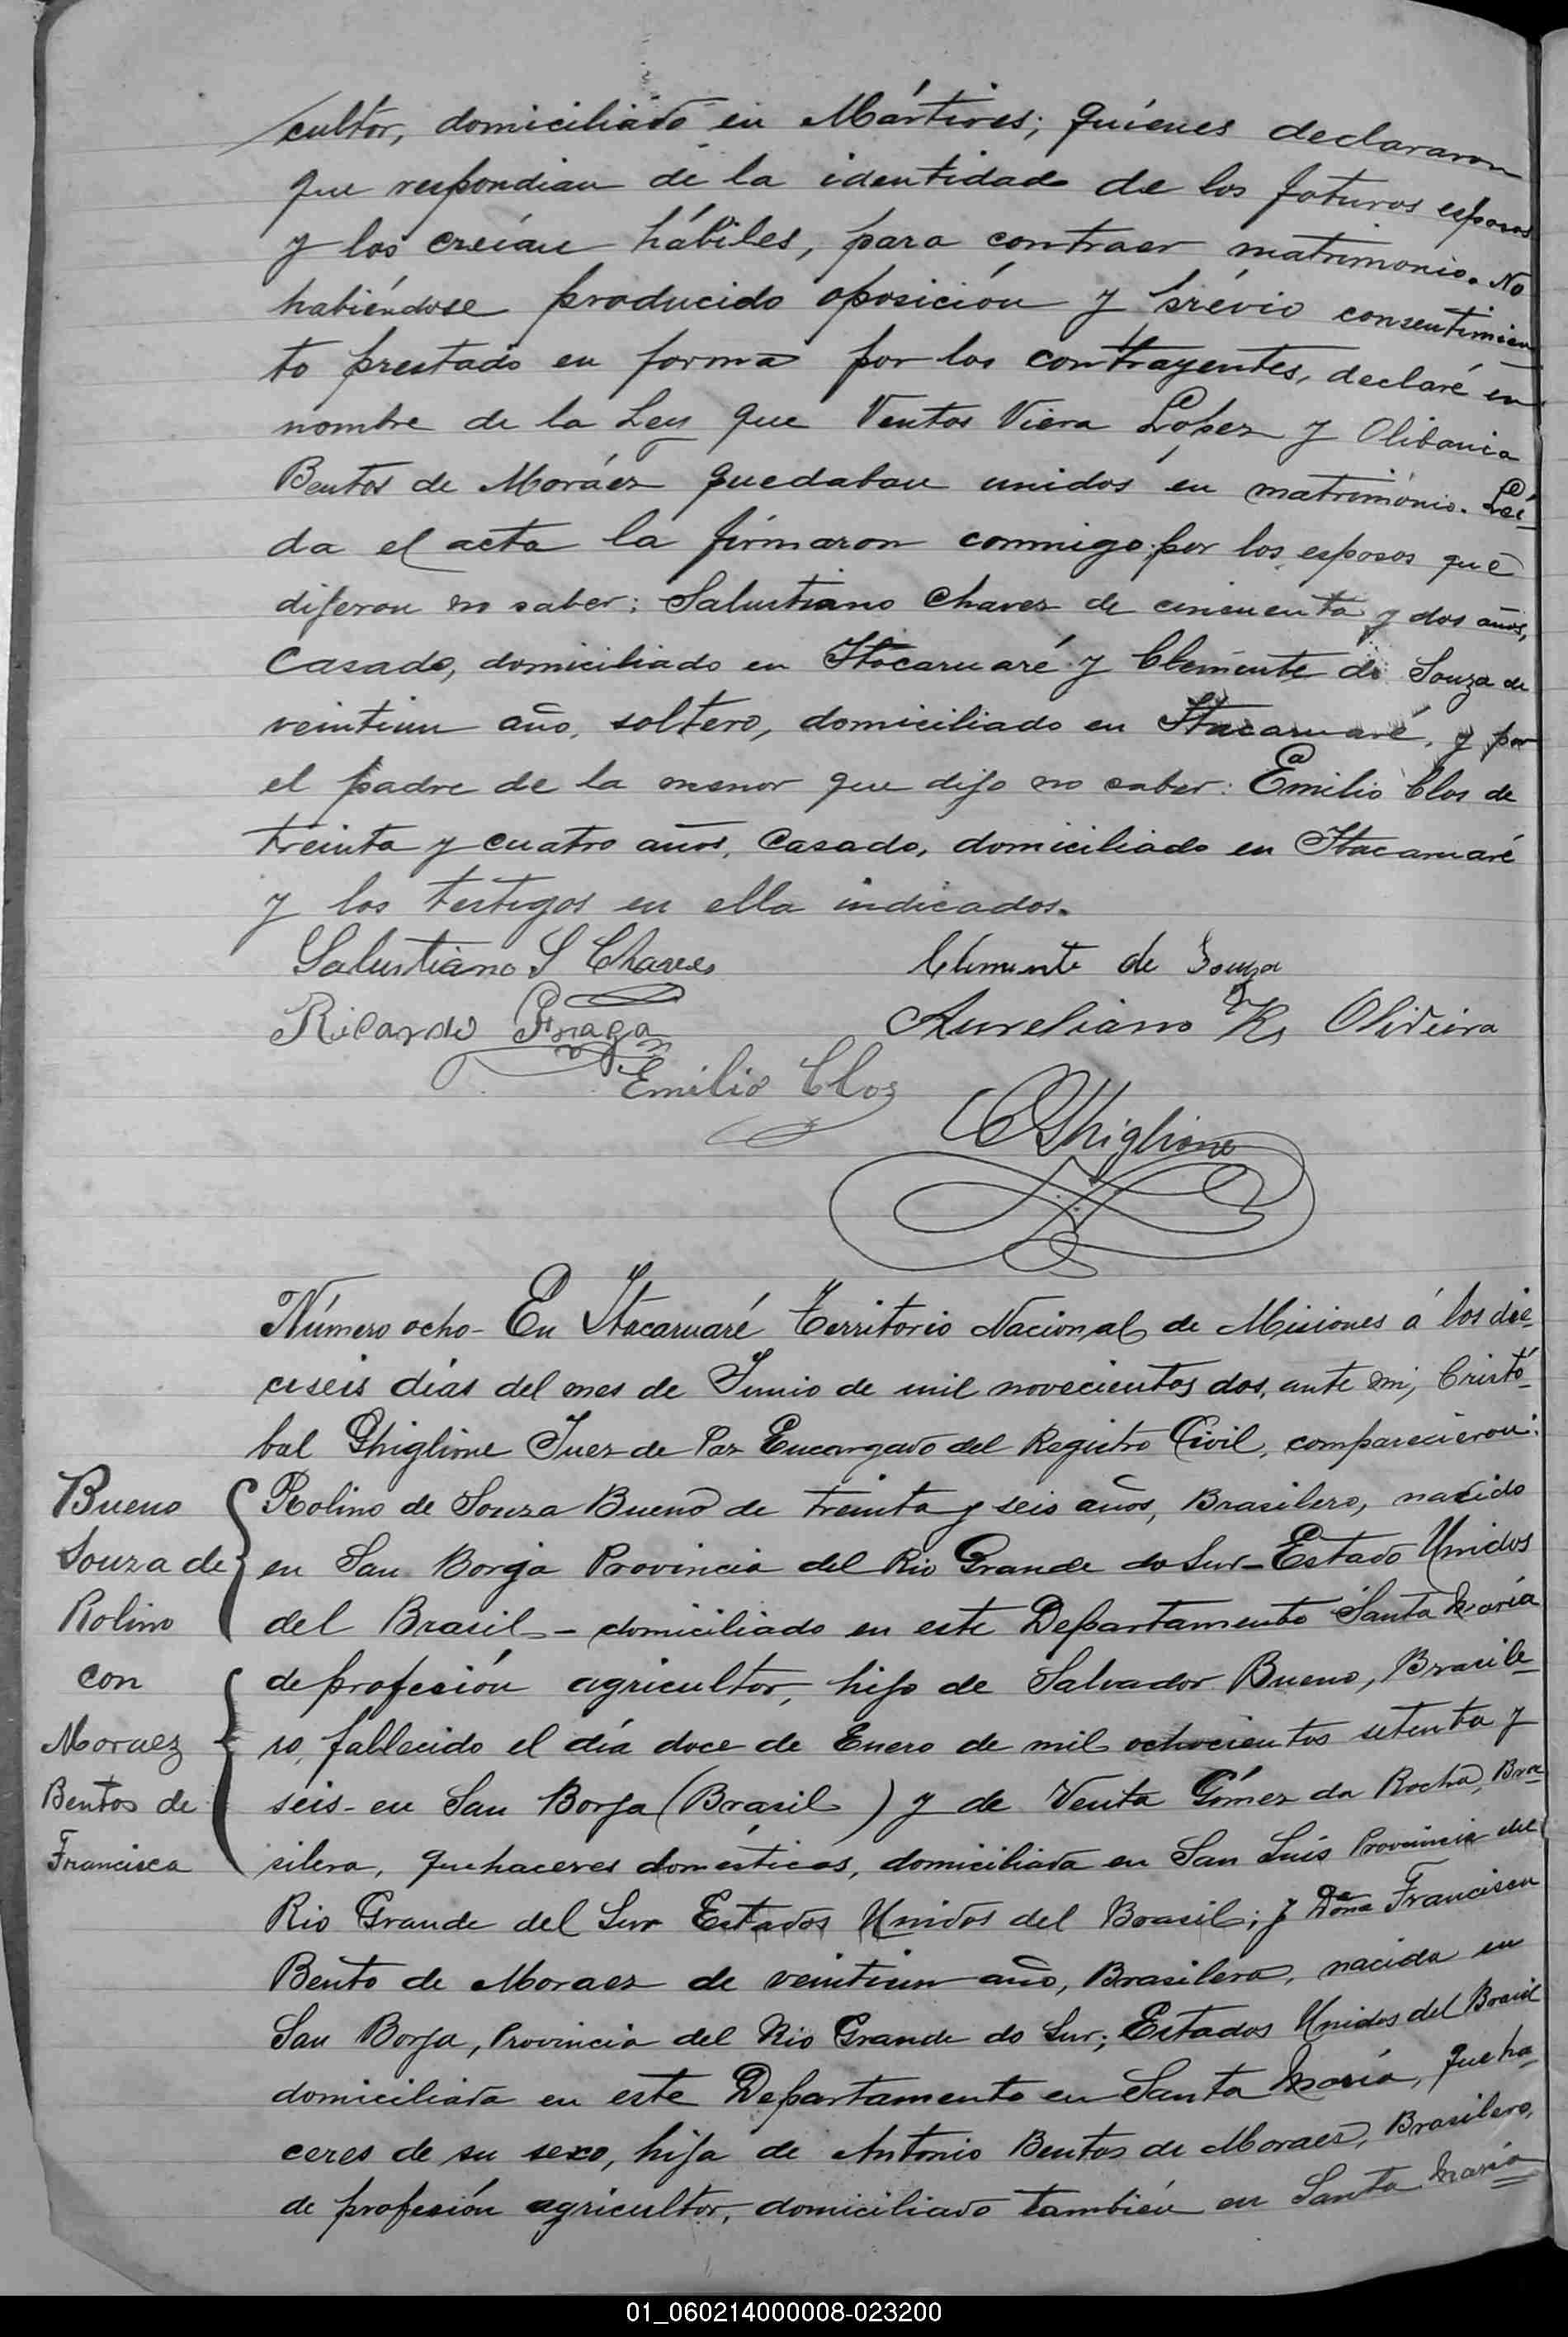 cultor, domiciliado en Mártires; quiénes declararon
que respondian de la identidad de los foturos esposos
y los creían hábiles, para contraer matrimonio. No
habiéndose producido oposición y prévio consentimien
to prestado en forma por los contrayentes, declaré en
nombre de la Ley que Ventos Viera López y Olibania
Bentos de Moráez quedaban unidos en matrimónio. Leí-
da el acta la firmaron conmigo por los esposos que
dijeron no saber: Salustiano Chavez de cincuenta y dos años,
Casado, domiciliado en Itacaruaré y Clemente de Souza de
veintiun año, soltero, domiciliado en Itacaruaré, y por
el padre de la menor que dijo no saber: Emilio Clos de
treinta y cuatro años, Casado, domiciliado en Itacaruaré
y los testigos en ella indicados.
Salustiano S Chaves
Clemente de Souza
Ricardo Fraga
Aureliano R, Oliveira
Emilio Clos
CGhiglione
Número ocho- En Itacaruaré Territorio Nacional de Misiones á los die-
ciseis dias del mes de Junio de mil novecientos dos, ante mi, Cristó-
bal Ghiglione Juez de Paz Encargado del Registro Civil, comparecieron:
Bueno
Souza de
Rolino
con
Moraez
Bentos de
Francisca
Rolino de Souza Bueno de treinta y seis años, Brasilero, nacido
en San Borja Provincia del Rio Grande do Sur- Estado Unidos
del Brasil - domiciliado en este Departamento Santa María
de profesión agricultor, hijo de Salvador Bueno, Brasile-
ro, fallecido el día doce de Enero de mil ochocientos setenta y
seis- en San Borja (Brasil) y de Venta Gómez da Rocha, Bra-
silera, quehaceres domésticos, domiciliada en San Luis Provincia del
Rio Grande del Sur Estados Unidos del Brasil; y Doña Francisca
Bento de Moraez de veintiun año, Brasilera, nacida en
San Borja, Provincia del Rio Grande do Sur; Estados Unidos del Brasil
domiciliada en este Departamento en Santa María, queha-
ceres de su sexo, hija de Antonio Bentos de Moraez, Brasilero,
de profesión agricultor, domiciliado también en Santa María
01_060214000008-023200